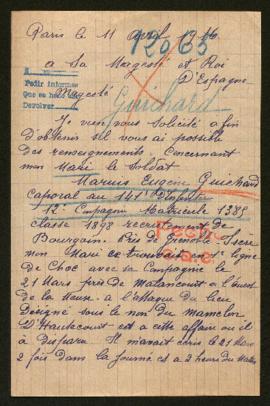 Paris le 11 avril 1916
12065
a Sa Magesté et Roi
D'Espagne
A
Pedir informes
Que se hace
Devolver
Magesté
Guichard
Je viens vous Solicité a fin
d'obtenir s'il vous ai possible
des renseignements Concernant
mon Mari le Soldat
Marius Eugène Guichard
Caporal au 141e D'infanterie
12e Compagnie Matricule 1385
classe 1898 recrutement de
Bourgoin. Près de Grenoble Isère
mon Mari se trouvait en 1e ligne
de Choc avec sa Compagnie le
21 Mars près de Malancourt a l'ouest
de la Meuse. a l'attaque du lieu
Désigné sous le nom du mamelon
D'Haucourt est a cette affaire ou il
a Disparu Il m'avait écris le 21 Mars
2 fois dans la Journé et a 2 heures du